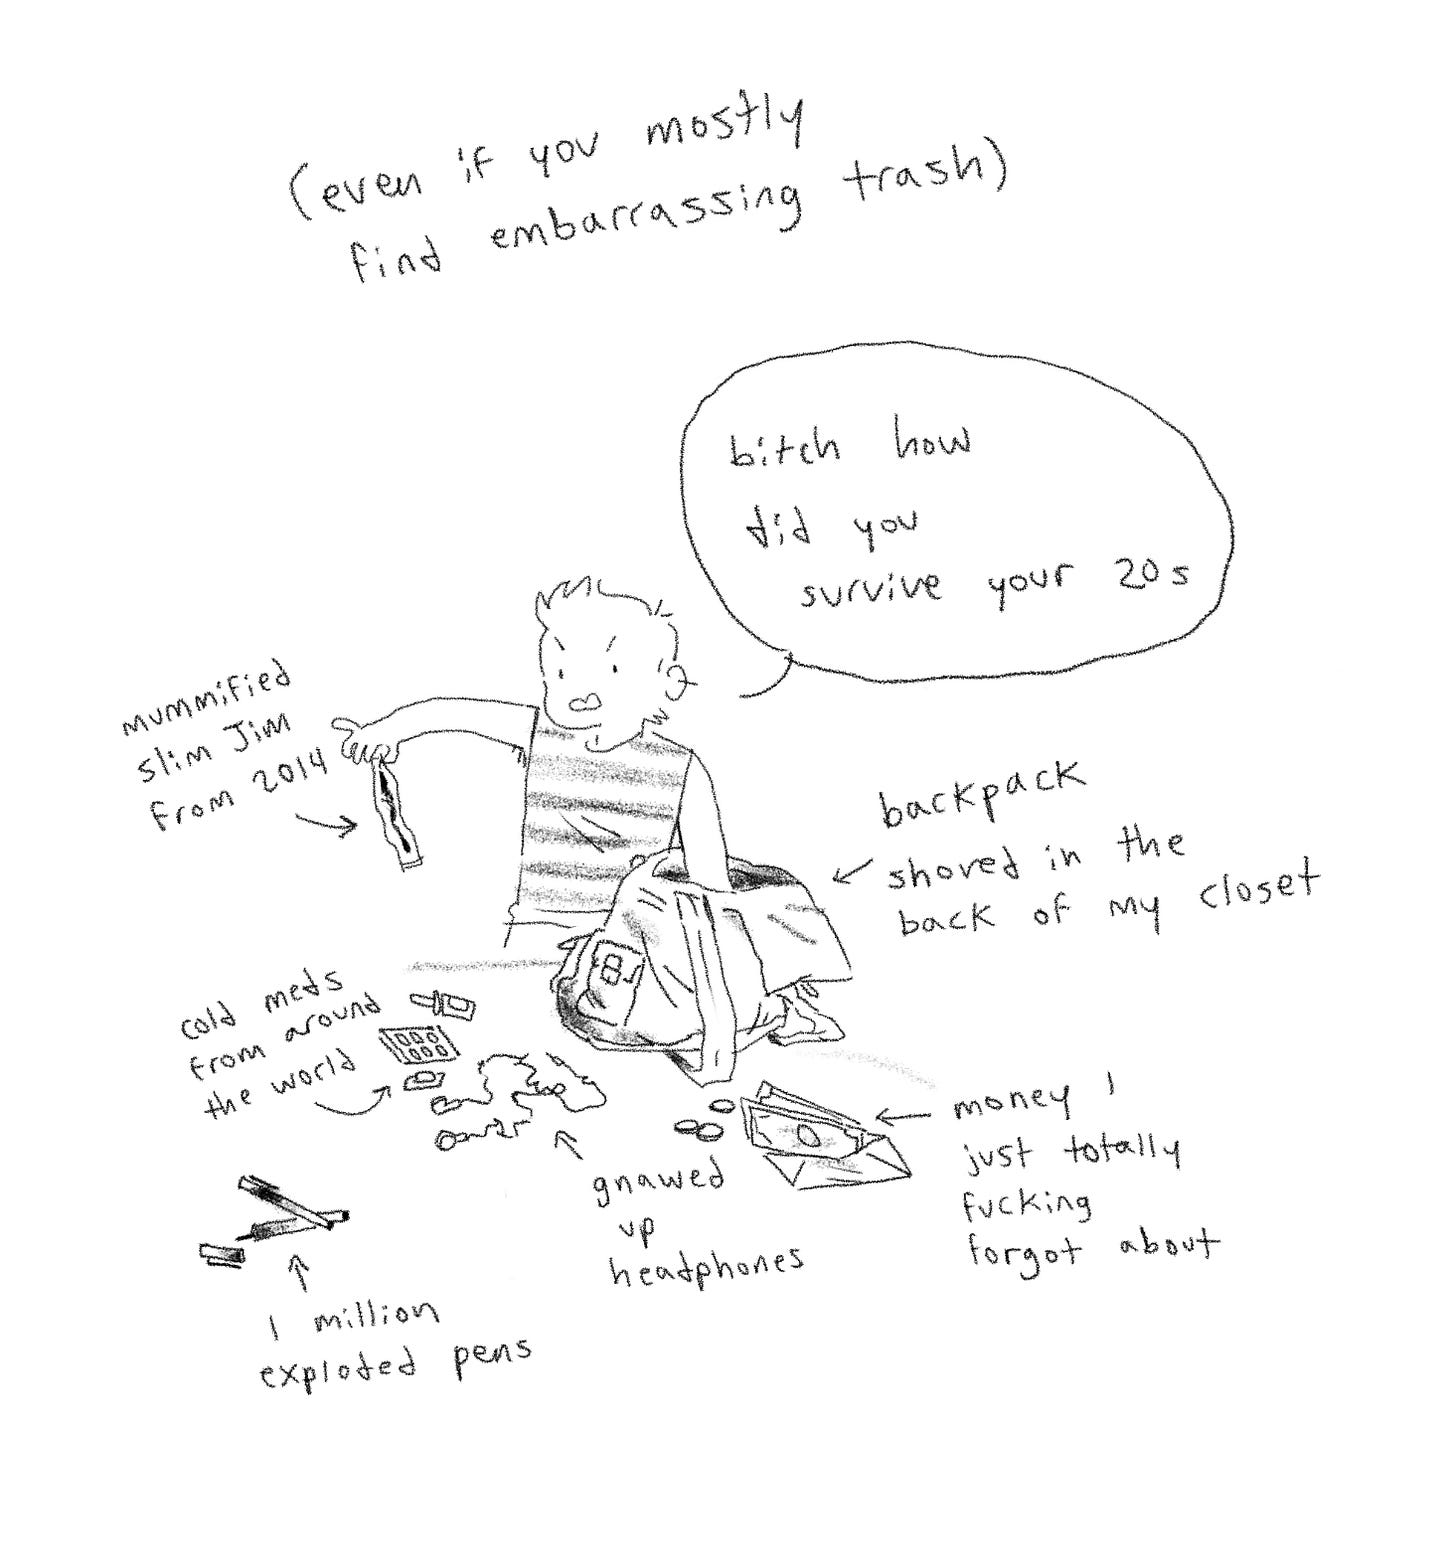 (even if you mostly
find embarrassing trash)
bitch how
did you
survive your 20s
mummified
slim Jim
from 2014
backpack
shoved in the
back of my closet
cold meds
from around
the world
money I
just totally
fucking
forgot about
gnawed
up
headphones
1 million
exploted pens